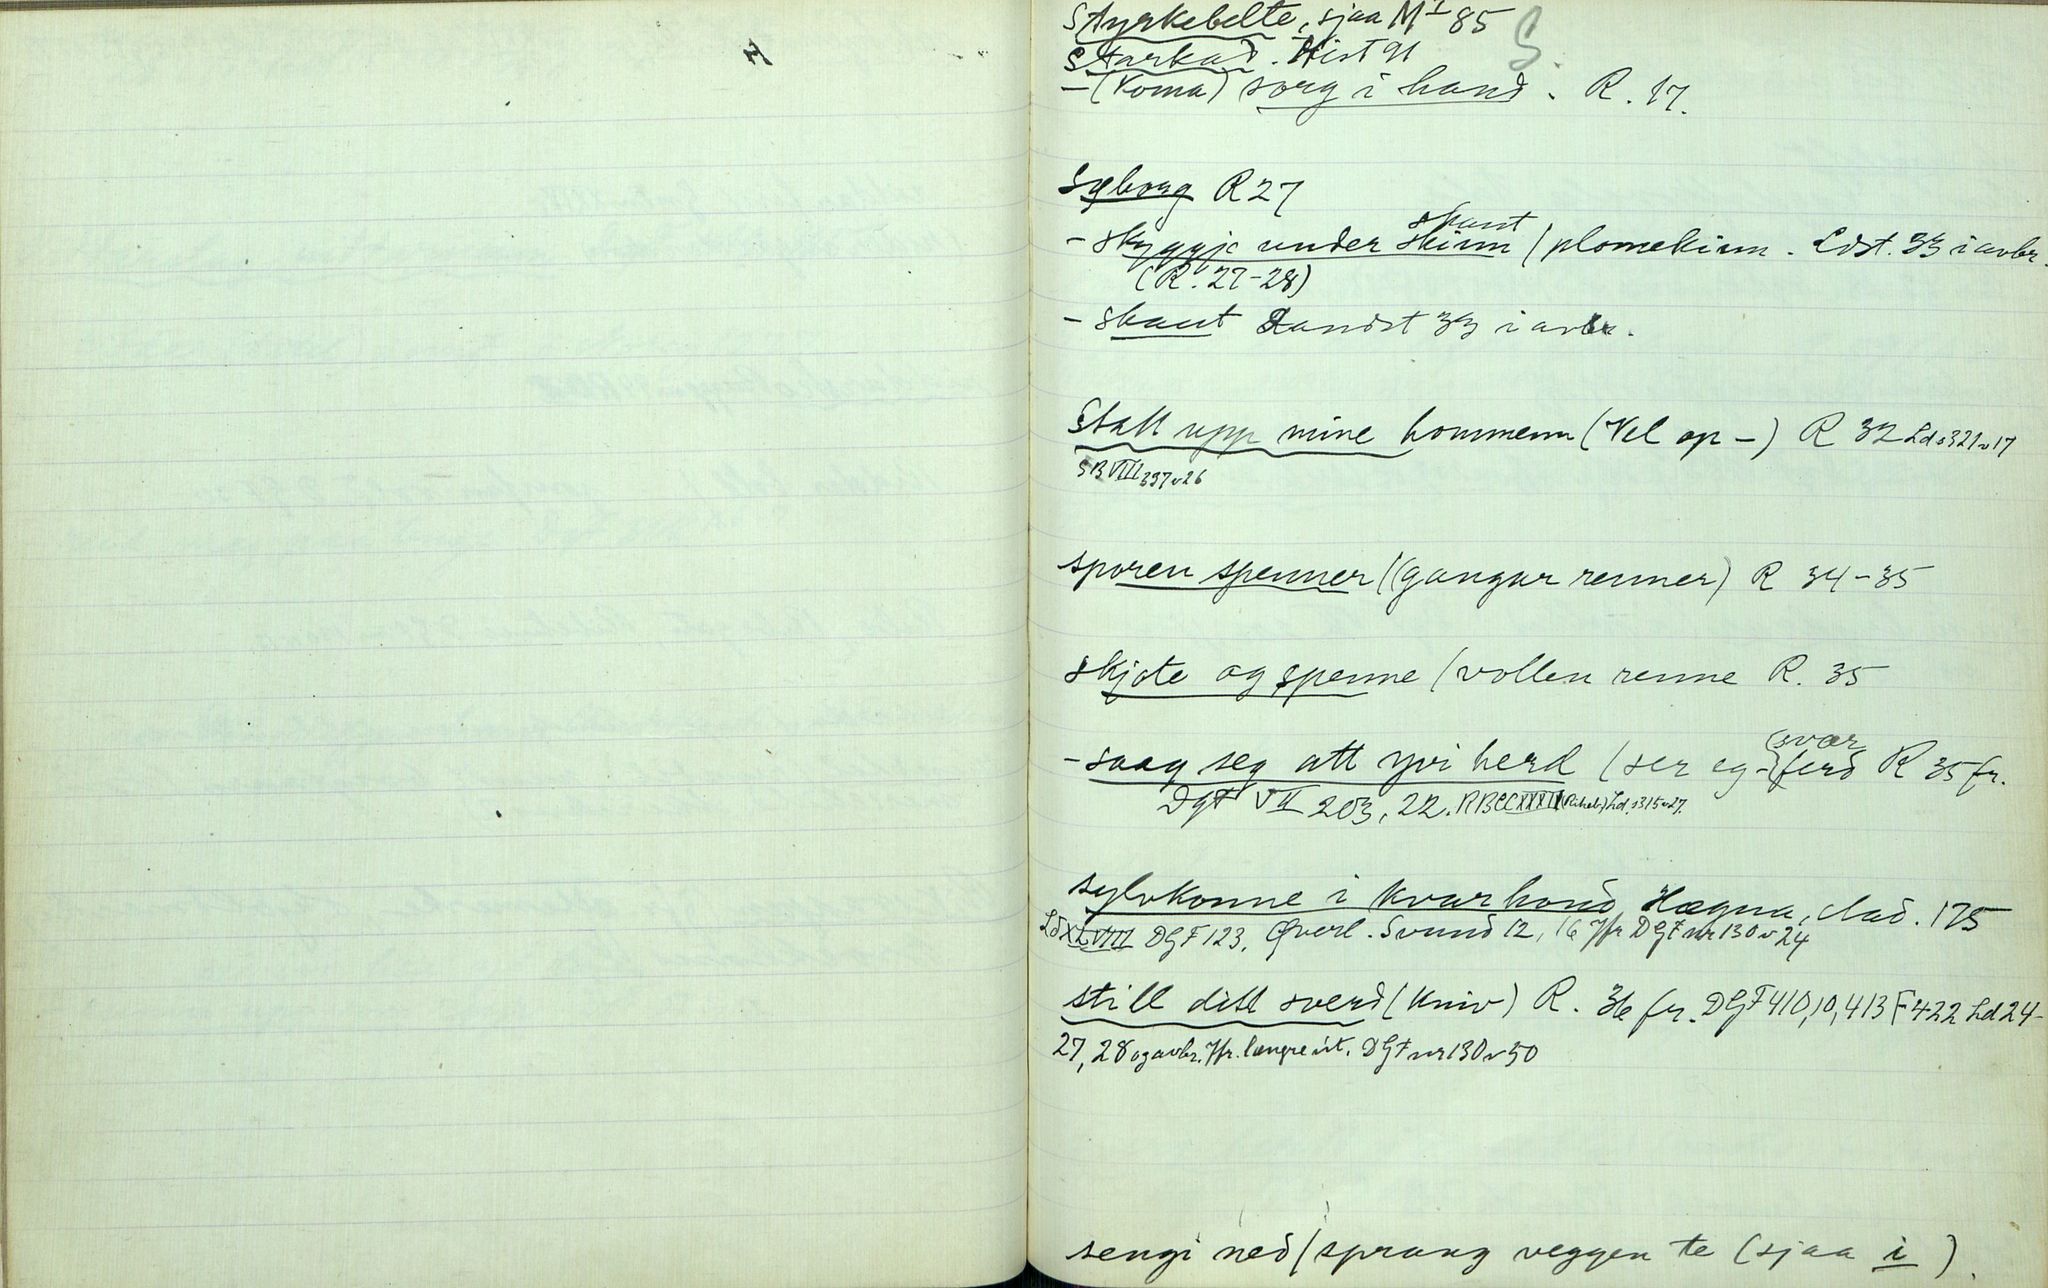 Styrkebelte, sjaa M I 85
S.
Starkad. Hist 91
– (Koma) sorg i hand. R. 17.
Sæborg R 27
skaut
– skyggje under skinn / plomekinn. Ldst. 33 i avbr.
(R. 27–28)
– skaut Landst 33 i avbr.
Statt upp mine hommenn (Vel op –) R 32 Ld s 321 v 17
SB VIII 397 v 26
sporen spenner (gangar renner) R 34–35
skjote og spenne / vollen renne R. 35
(svær
– saag seg att yvi herd (ser eg – ferd R 35 fr.
DgF VII 203, 22. RB CCXXXIV (Riheb) Ld. s 315 v 27.
sylvkonne i kvar hond Hægna, Lad. 175
Ld XLVIII DGF 123, Øverl. Svend 12, 16 Jfr DGF nr 130 v 24
still ditt sverd (kniv) R. 36 fr. DGF 410, 10, 413 F 422 Ld 24–
27, 28 og avbr. Jfr. længre út. DGF nr 130 v 50
sengi ned / sprang veggen te (sjaa i)